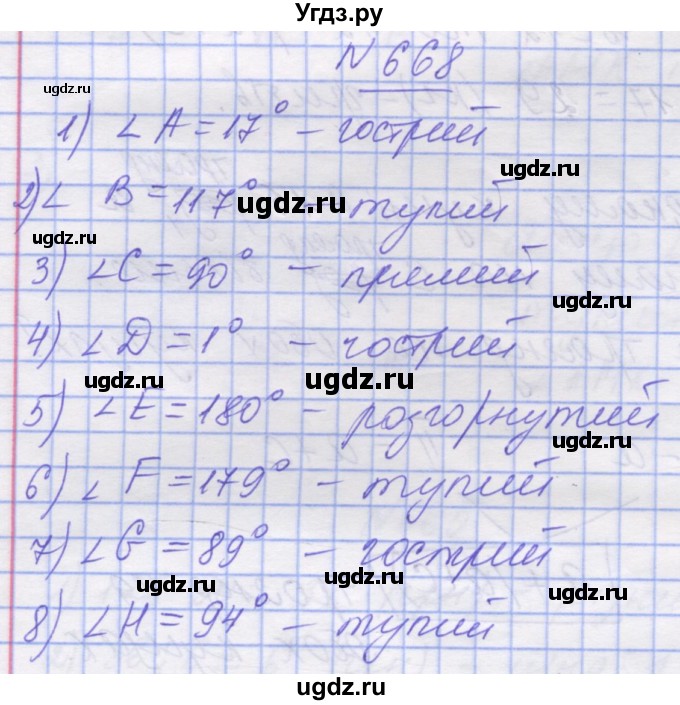 Угдз.ру
N 668
ugdz.ru
1) ∠A = 17° – гострий
ugdz.ru
2) ∠ B = 117° – тупий
ugdz.ru
ugdz.ru
3) ∠C = 90° – прямий
ugdz.ru
4) ∠D = 1° – гострий
ugdz.ru ugdz.ru
5) ∠E = 180° – розгорнутий
ugdz.ru
6) ∠F = 179° – тупий
ugdz.ru
7) ∠G = 89° – гострий
ugdz.ru ugdz.ru
8) ∠H = 94° – тупий
ugdz.ru
ugdz.ru